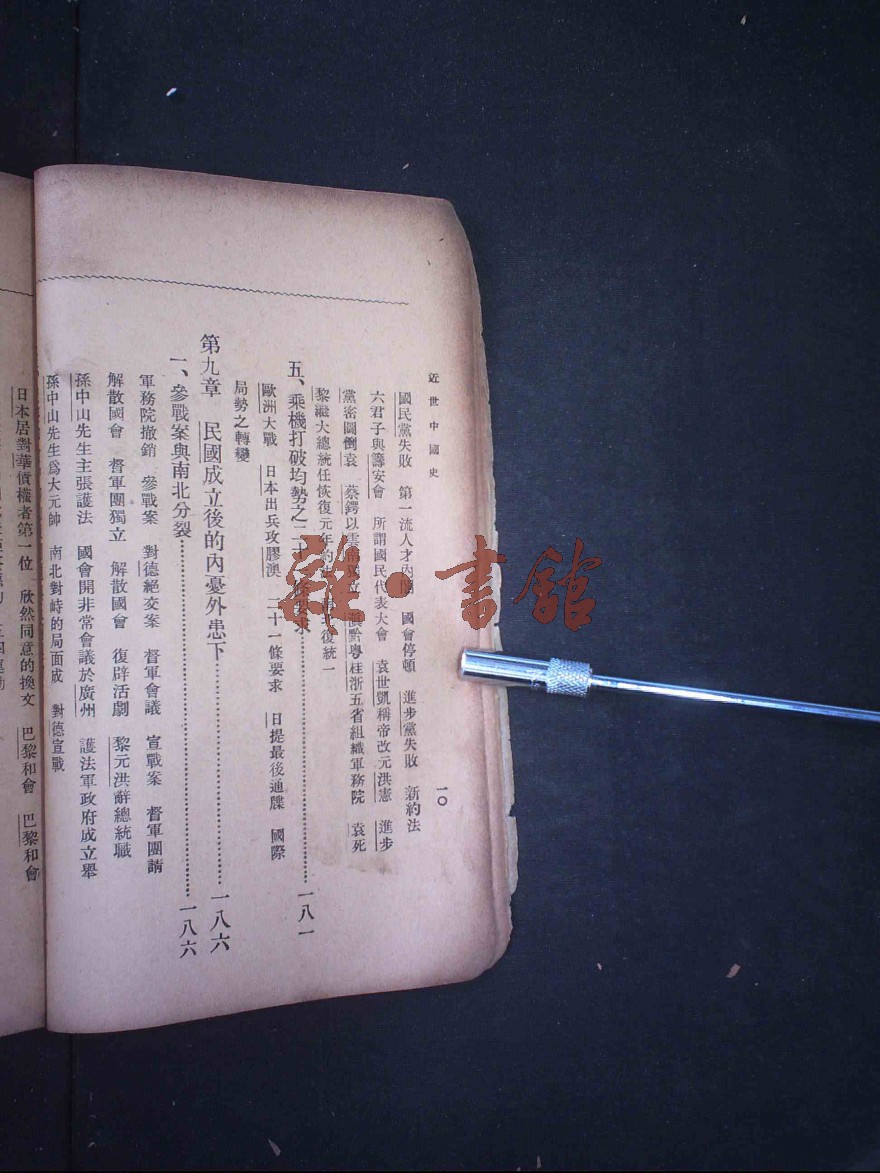 近世中國史
一〇
國民黨失敗 第一流人才內閣 國會停頓 進步黨失敗 新約法
六君子與籌安會 所謂國民代表大會 袁世凱稱帝改元洪憲 進步
黨密圖倒袁 蔡鍔以雲南獨立 滇黔粵桂浙五省組織軍務院 袁死
黎繼大總統任恢復元年約法 復統一
五、乘機打破均勢之二十一條要求 一八一
歐洲大戰 日本出兵攻膠澳 二十一條要求 日提最後通牒 國際
局勢之轉變
第九章 民國成立後的內憂外患下 一八六
一、參戰案與南北分裂 一八六
軍務院撤銷 參戰案 對德絕交案 督軍會議 宣戰案 督軍團請
解散國會 督軍團獨立 解散國會 復辟活劇 黎元洪辭總統職
孫中山先生主張護法 國會開非常會議於廣州 護法軍政府成立舉
孫中山先生爲大元帥 南北對峙的局面成 對德宣戰
日本居對華債權者第一位 欣然同意的換文 巴黎和會 巴黎和會
雜·書館